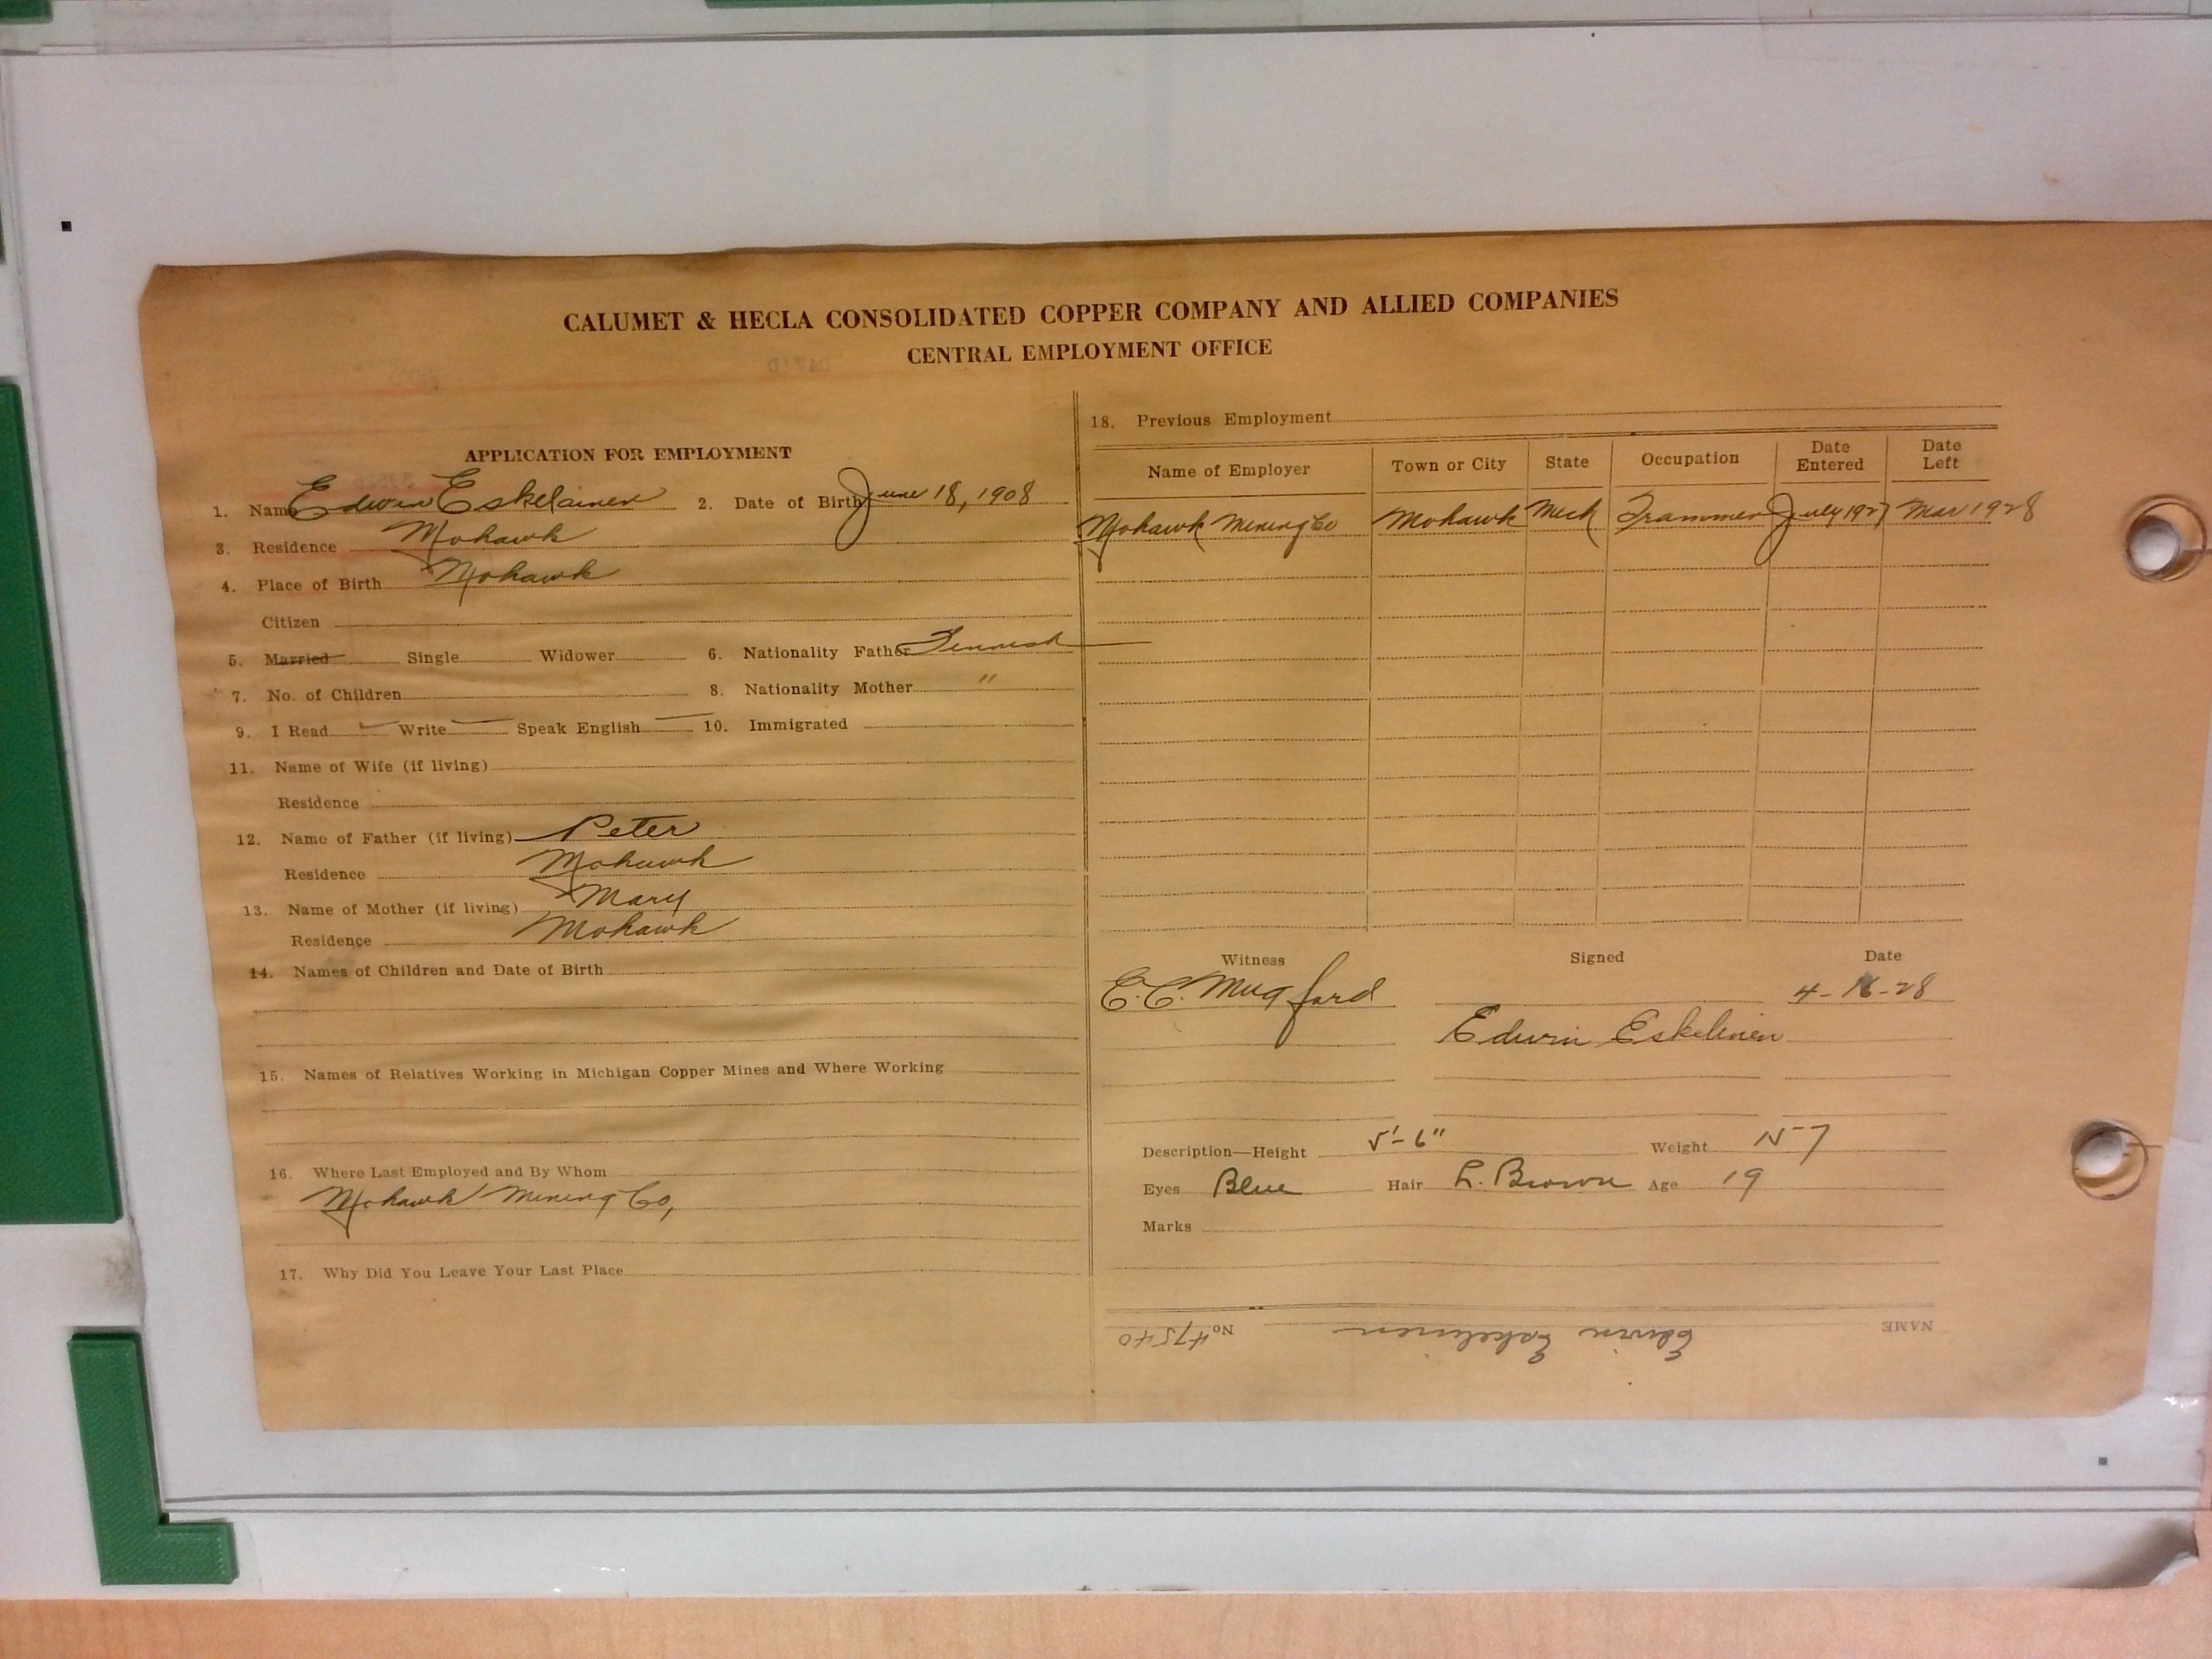 CALUMET & HECLA CONSOLIDATED COPPER COMPANY AND ALLIED COMPANIES
CENTRAL EMPLOYMENT OFFICE
APPLICATION FOR EMPLOYMENT
1. Name Edwin Eskelainen 2. Date of Birth June 18, 1908
3. Residence Mohawk
4. Place of Birth Mohawk
Citizen
5. Married Single Widower 6. Nationality Father Finnish
7. No. of Children 8. Nationality Mother "
9. I Read ✓ Write Speak English 10. Immigrated
11. Name of Wife (if living)
Residence
12. Name of Father (if living) Peter
Residence Mohawk
13. Name of Mother (if living) Mary
Residence Mohawk
14. Names of Children and Date of Birth
15. Names of Relatives Working in Michigan Copper Mines and Where Working
16. Where Last Employed and By Whom
Mohawk Mining Co,
17. Why Did You Leave Your Last Place
18. Previous Employment
Name of Employer Town or City State Occupation Date Entered Date Left
Mohawk Mining Co Mohawk Mich Trammer July 1927 Mar 1928
Witness Signed Date
E.C. Mugford 4-16-28
Edwin Eskelinen
Description—Height 5'-6" Weight 157
Eyes Blue Hair L. Brown Age 19
Marks
NAME Edwin Eskelinen No. 47540